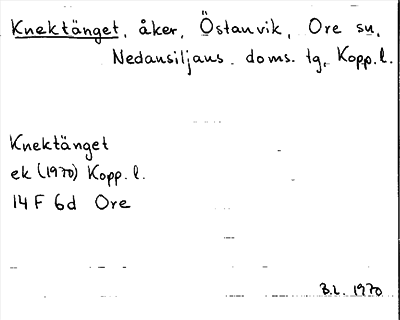 Knektänget, åker, Östanvik, Ore sn,
Nedansiljans doms. tg, Kopp. l.
Knektänget
ek (1970) Kopp. l.
14 F 6d Ore
B.L. 1970